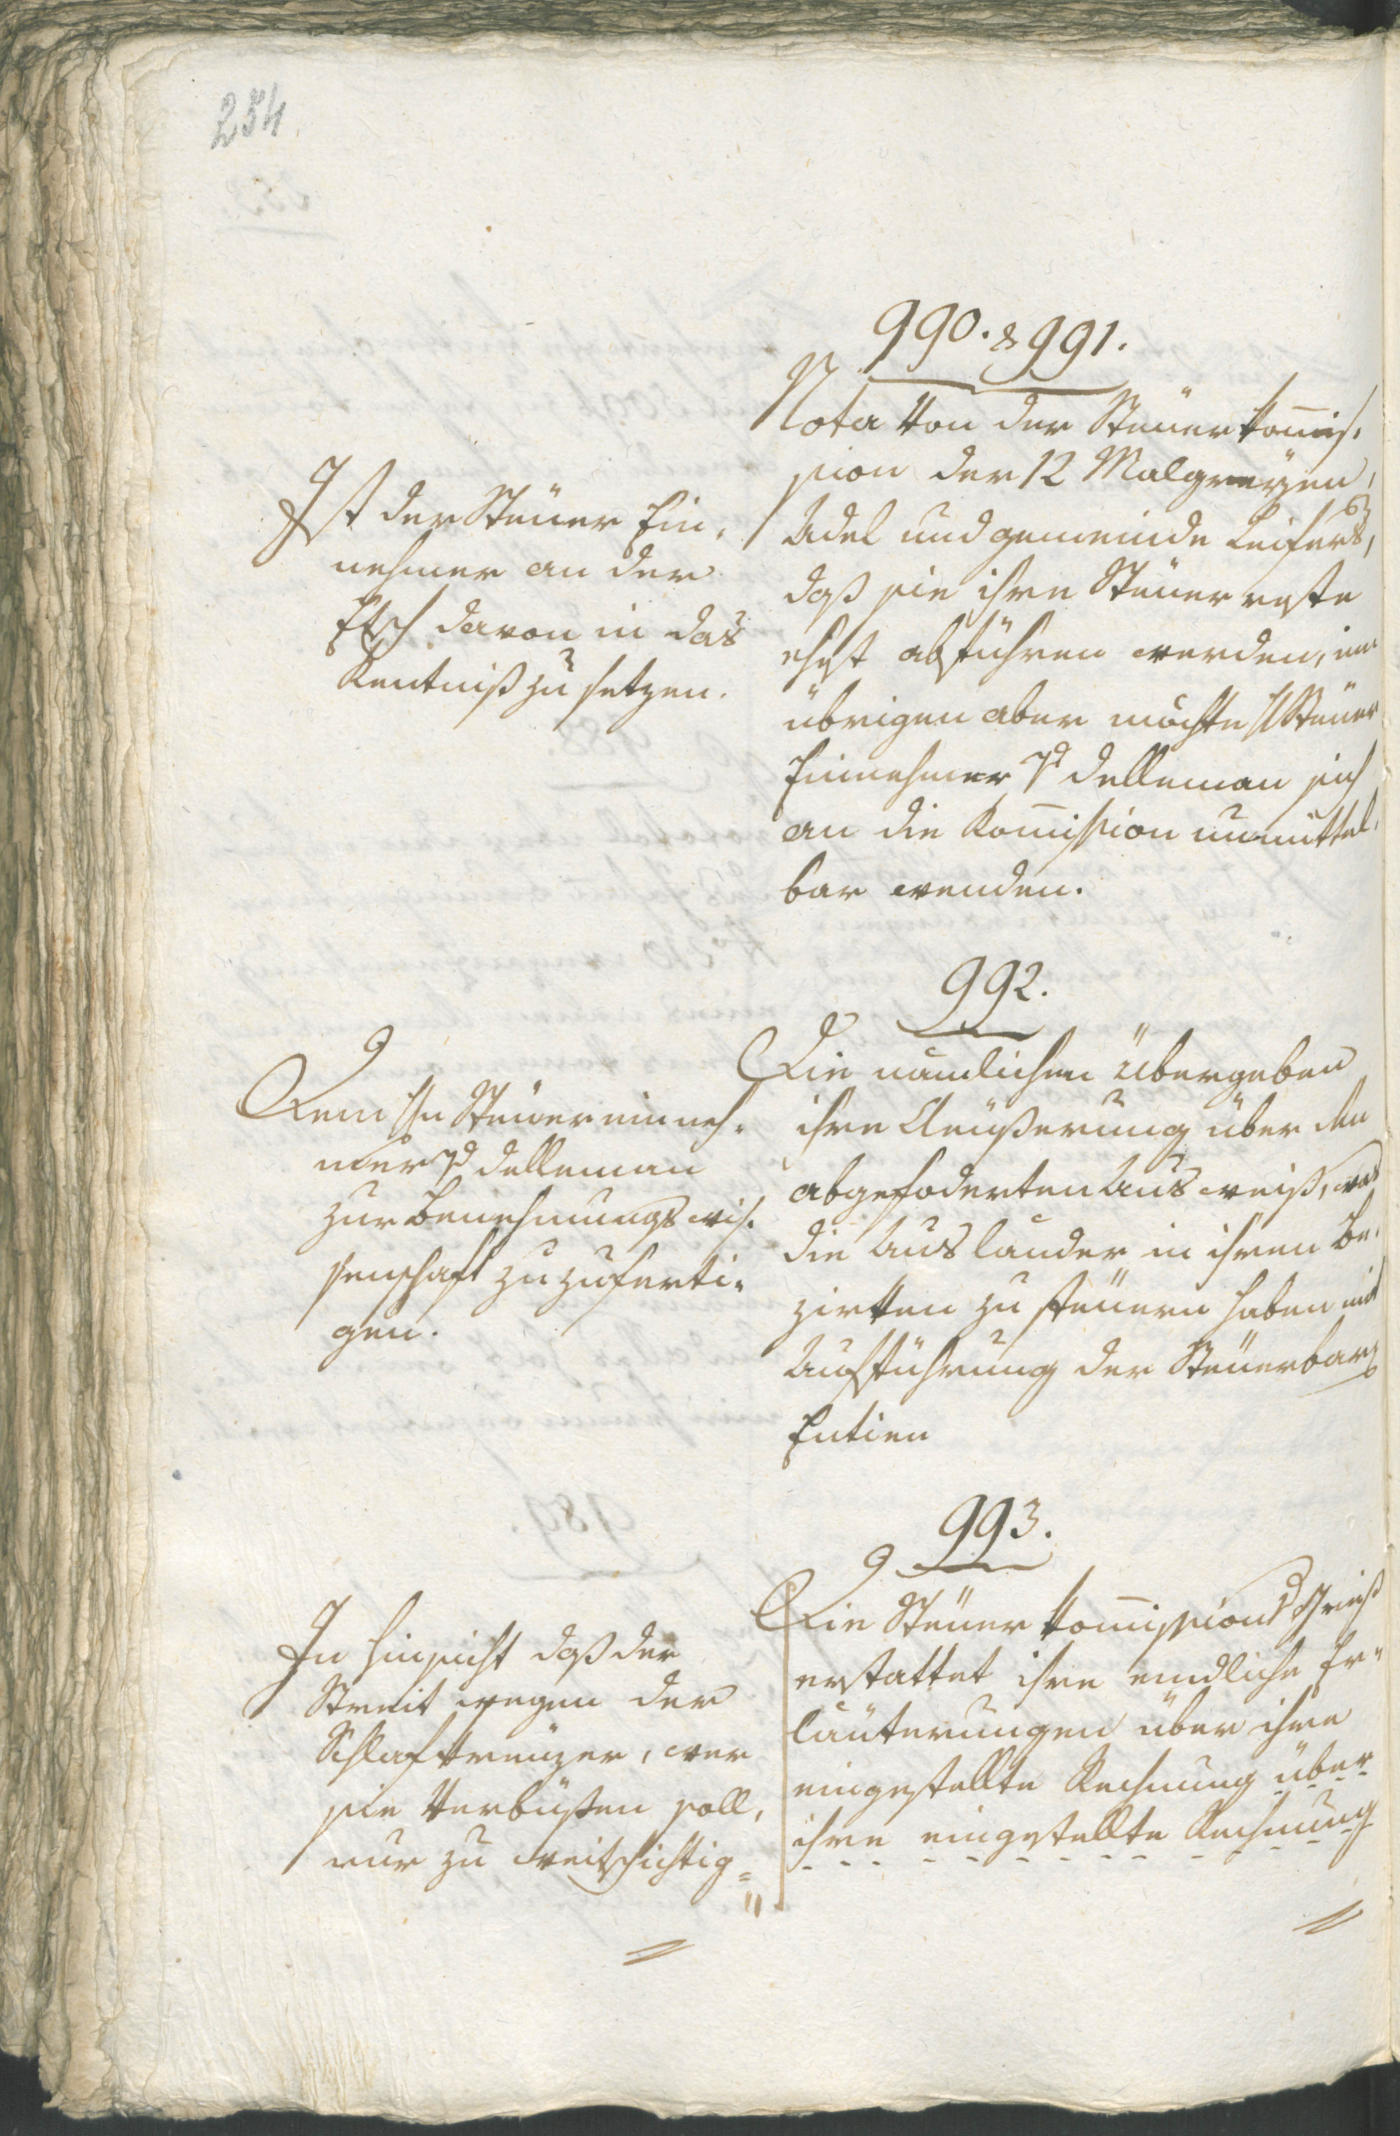 254
990. & 991.
Nota von der Steuerkom̅is¸
sion der 12 Malgreyen,
Adel und gemeinde Leifers,
daß sie ihre Steuerreste
ehest abführen werden, im
übrigen aber möchte H Steuer
Einnehmer v delleman sich
an die Kom̅ission unmittel¸
bar wenden.
Ist der Steuer Ein¸
nehmer an der
Etsch davon in das
Kentniß zu setzen.
992.
Die nämlichen übergeben
ihre Aeußerung über den
abgefoderten Ausweiß, was
die Ausländer in ihren Be¸
zirken zu steuern haben mit
Aufführung der Steuerbar
Entien
Dem Hn Steuereinneh¸
mer v delleman
zur Benehmungswis¸
senschaft zuzuferti¸
gen.
993.
Die Steuer Kom̅ission Grieß
erstattet ihre endliche Er¸
läuterungen über ihre
eingestellte Rechnung über
ihre eingestellte Rechnung
In Hinsicht daß der
Streit wegen der
Schlafkreuzer, wer
sie verbüßen soll,
nur zu weitschichtig